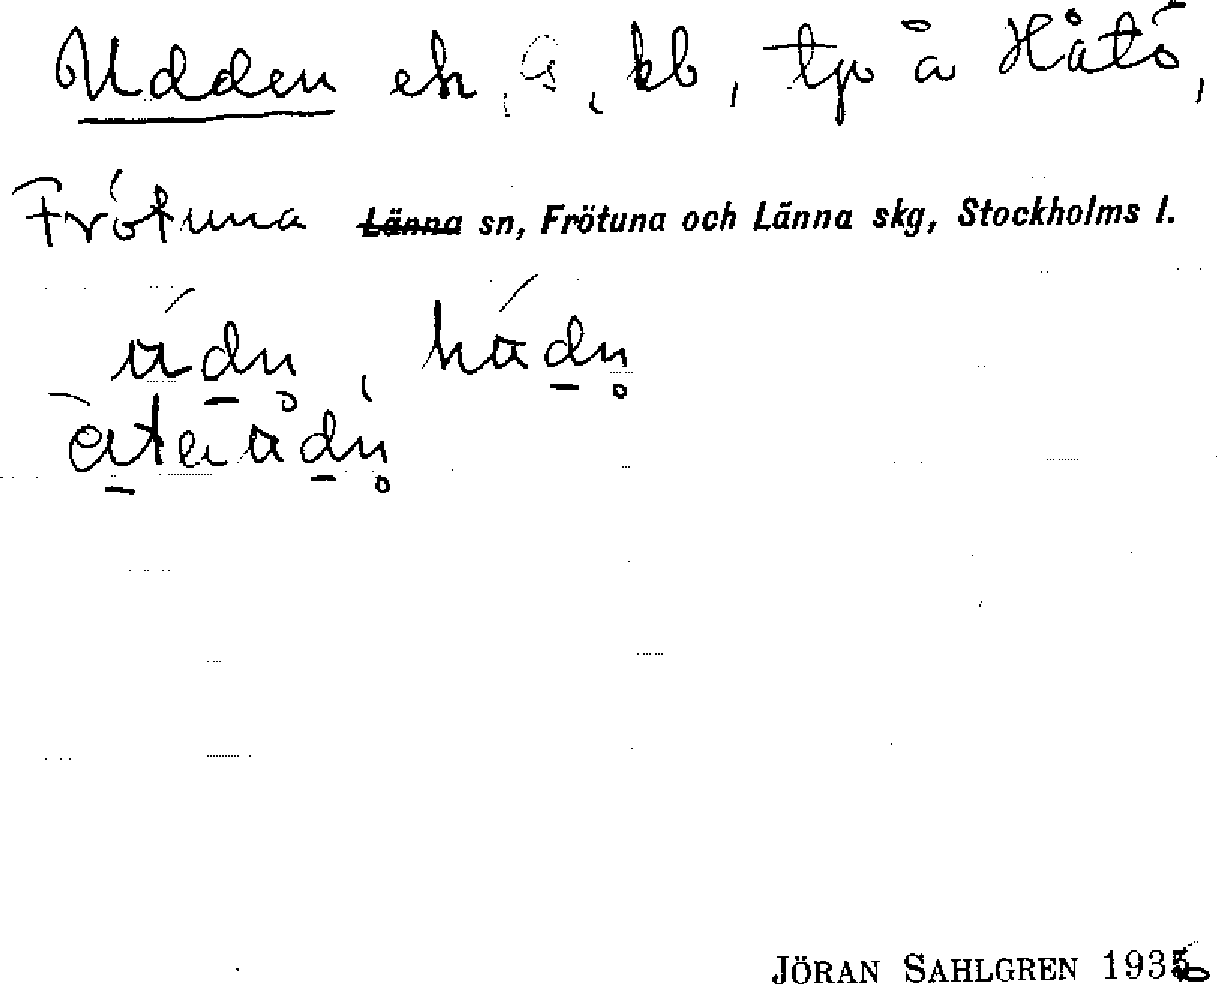 Udden ek, G, kb, tp å Håtö,
Frötuna ~~Länna~~ sn, Frötuna och Länna skg, Stockholms l.
JÖRAN SAHLGREN 1936